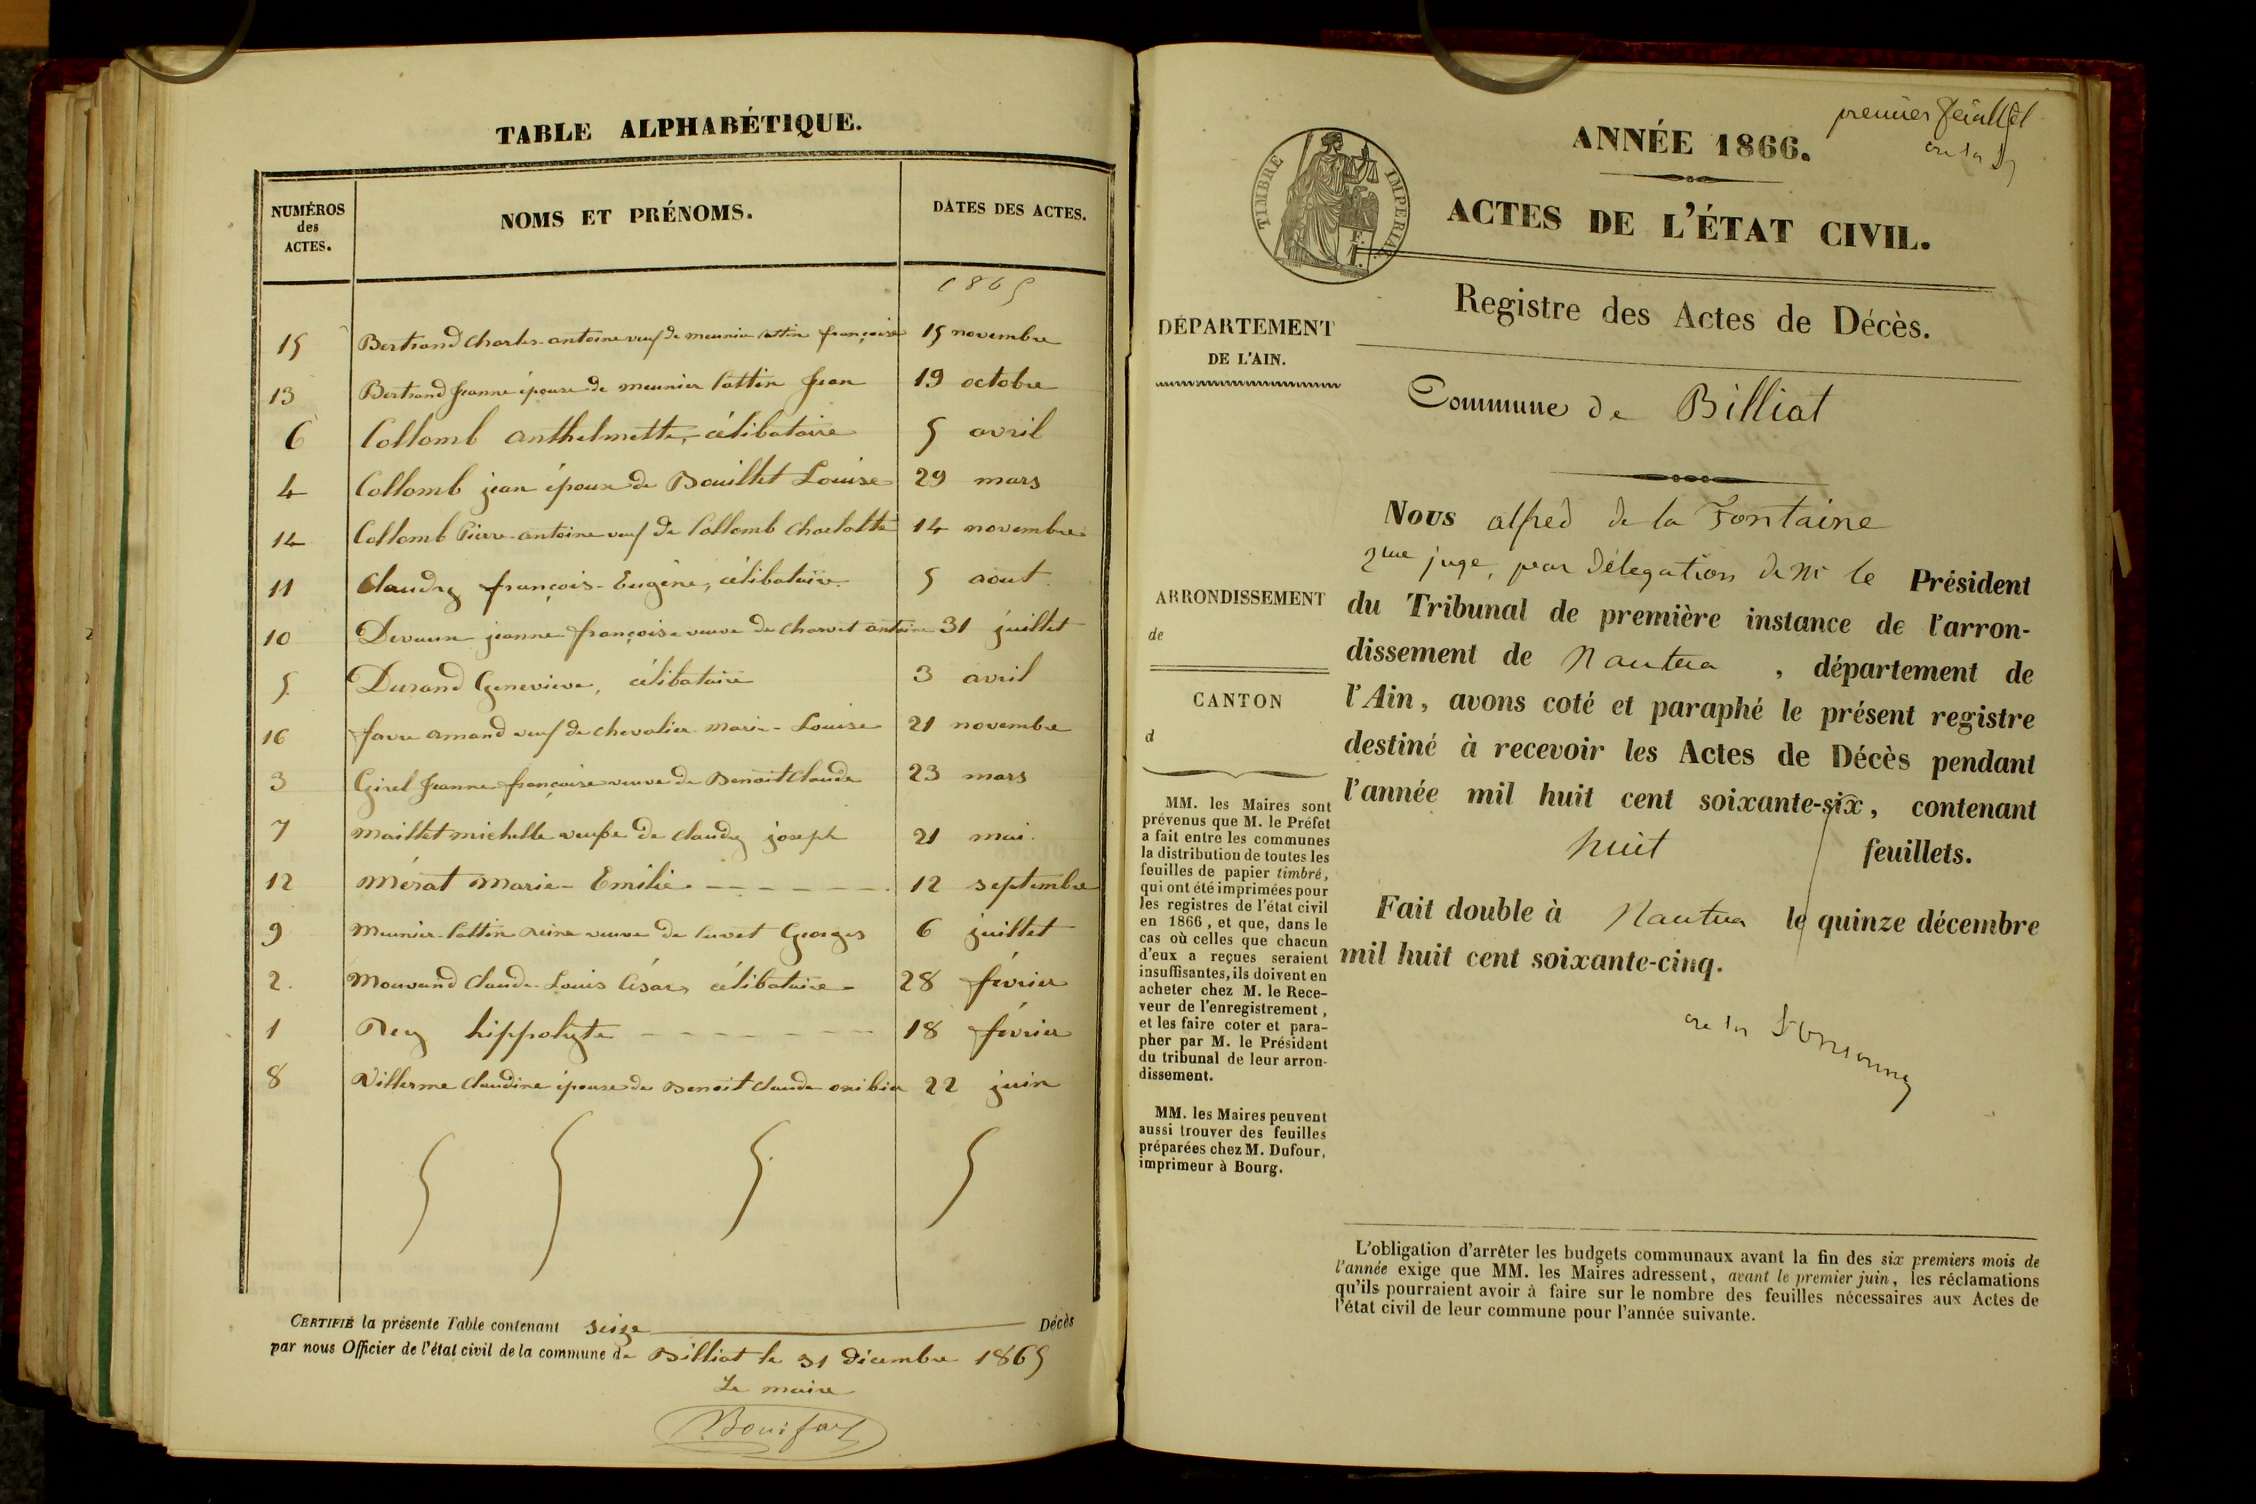 TABLE ALPHABÉTIQUE.
NUMÉROS des ACTES. NOMS ET PRÉNOMS. DATES DES ACTES.
1865
15 Bertrand Charles-antoine veuf de meunier cottin françoise 15 novembre
13 Bertrand Jeanne épouse de meunier Cottin Jean 19 octobre
6 Collomb Anthelmette, célibataire 5 avril
4 Collomb jean époux de Bouillet Louise 29 mars
14 Collomb Pierre-antoine veuf de Collomb Charlotte 14 novembre
11 Claudry françois-Eugène, célibataire 5 aout
10 Devaux jeanne françoise veuve de Charvet antoine 31 juillet
5 Durand Genevieve, célibataire 3 avril
16 favre amand veuf de chevalier marie-Louise 21 novembre
3 Girel Jeanne françoise veuve de Benoit Claude 23 mars
7 maillet michelle veuve de claudy joseph 21 mai
12 Mérat Marie-Emilie 12 septembre
9 Meunier-Cottin Reine veuve de Curvet Georges 6 juillet
2. Mouvand Claude-Louis César, célibataire 28 février
1 Rey hippolyte 18 février
8 Villerme Claudine épouse de Benoit Claude 22 juin
CERTIFIÉ la présente Table contenant seize Décès
par nous Officier de l'état civil de la commune de Billiat le 31 décembre 1865
Le maire
premier feuillet
ANNÉE 1866.
TIMBRE IMPERIAL
ACTES DE L'ÉTAT CIVIL.
Registre des Actes de Décès.
Commune de Billiat
DÉPARTEMENT
DE L'AIN.
ARRONDISSEMENT
de
CANTON
d
MM. les Maires sont
prévenus que M. le Préfet
a fait entre les communes
la distribution de toutes les
feuilles de papier timbré,
qui ont été imprimées pour
les registres de l'état civil
en 1866, et que, dans le
cas où celles que chacun
d'eux a reçues seraient
insuffisantes, ils doivent en
acheter chez M. le Rece-
veur de l'enregistrement,
et les faire coter et para-
pher par M. le Président
du tribunal de leur arron-
dissement.
MM. les Maires peuvent
aussi trouver des feuilles
préparées chez M. Dufour,
imprimeur à Bourg.
Nous alfred de la Fontaine
2me juge, par délégation de Mr le Président
du Tribunal de première instance de l'arron-
dissement de Nantua, département de
l'Ain, avons coté et paraphé le présent registre
destiné à recevoir les Actes de Décès pendant
l'année mil huit cent soixante-six, contenant
huit feuillets.
Fait double à Nantua le quinze décembre
mil huit cent soixante-cinq.
L'obligation d'arrêter les budgets communaux avant la fin des six premiers mois de
l'année exige que MM. les Maires adressent, avant le premier juin, les réclamations
qu'ils pourraient avoir à faire sur le nombre des feuilles nécessaires aux Actes de
l'état civil de leur commune pour l'année suivante.